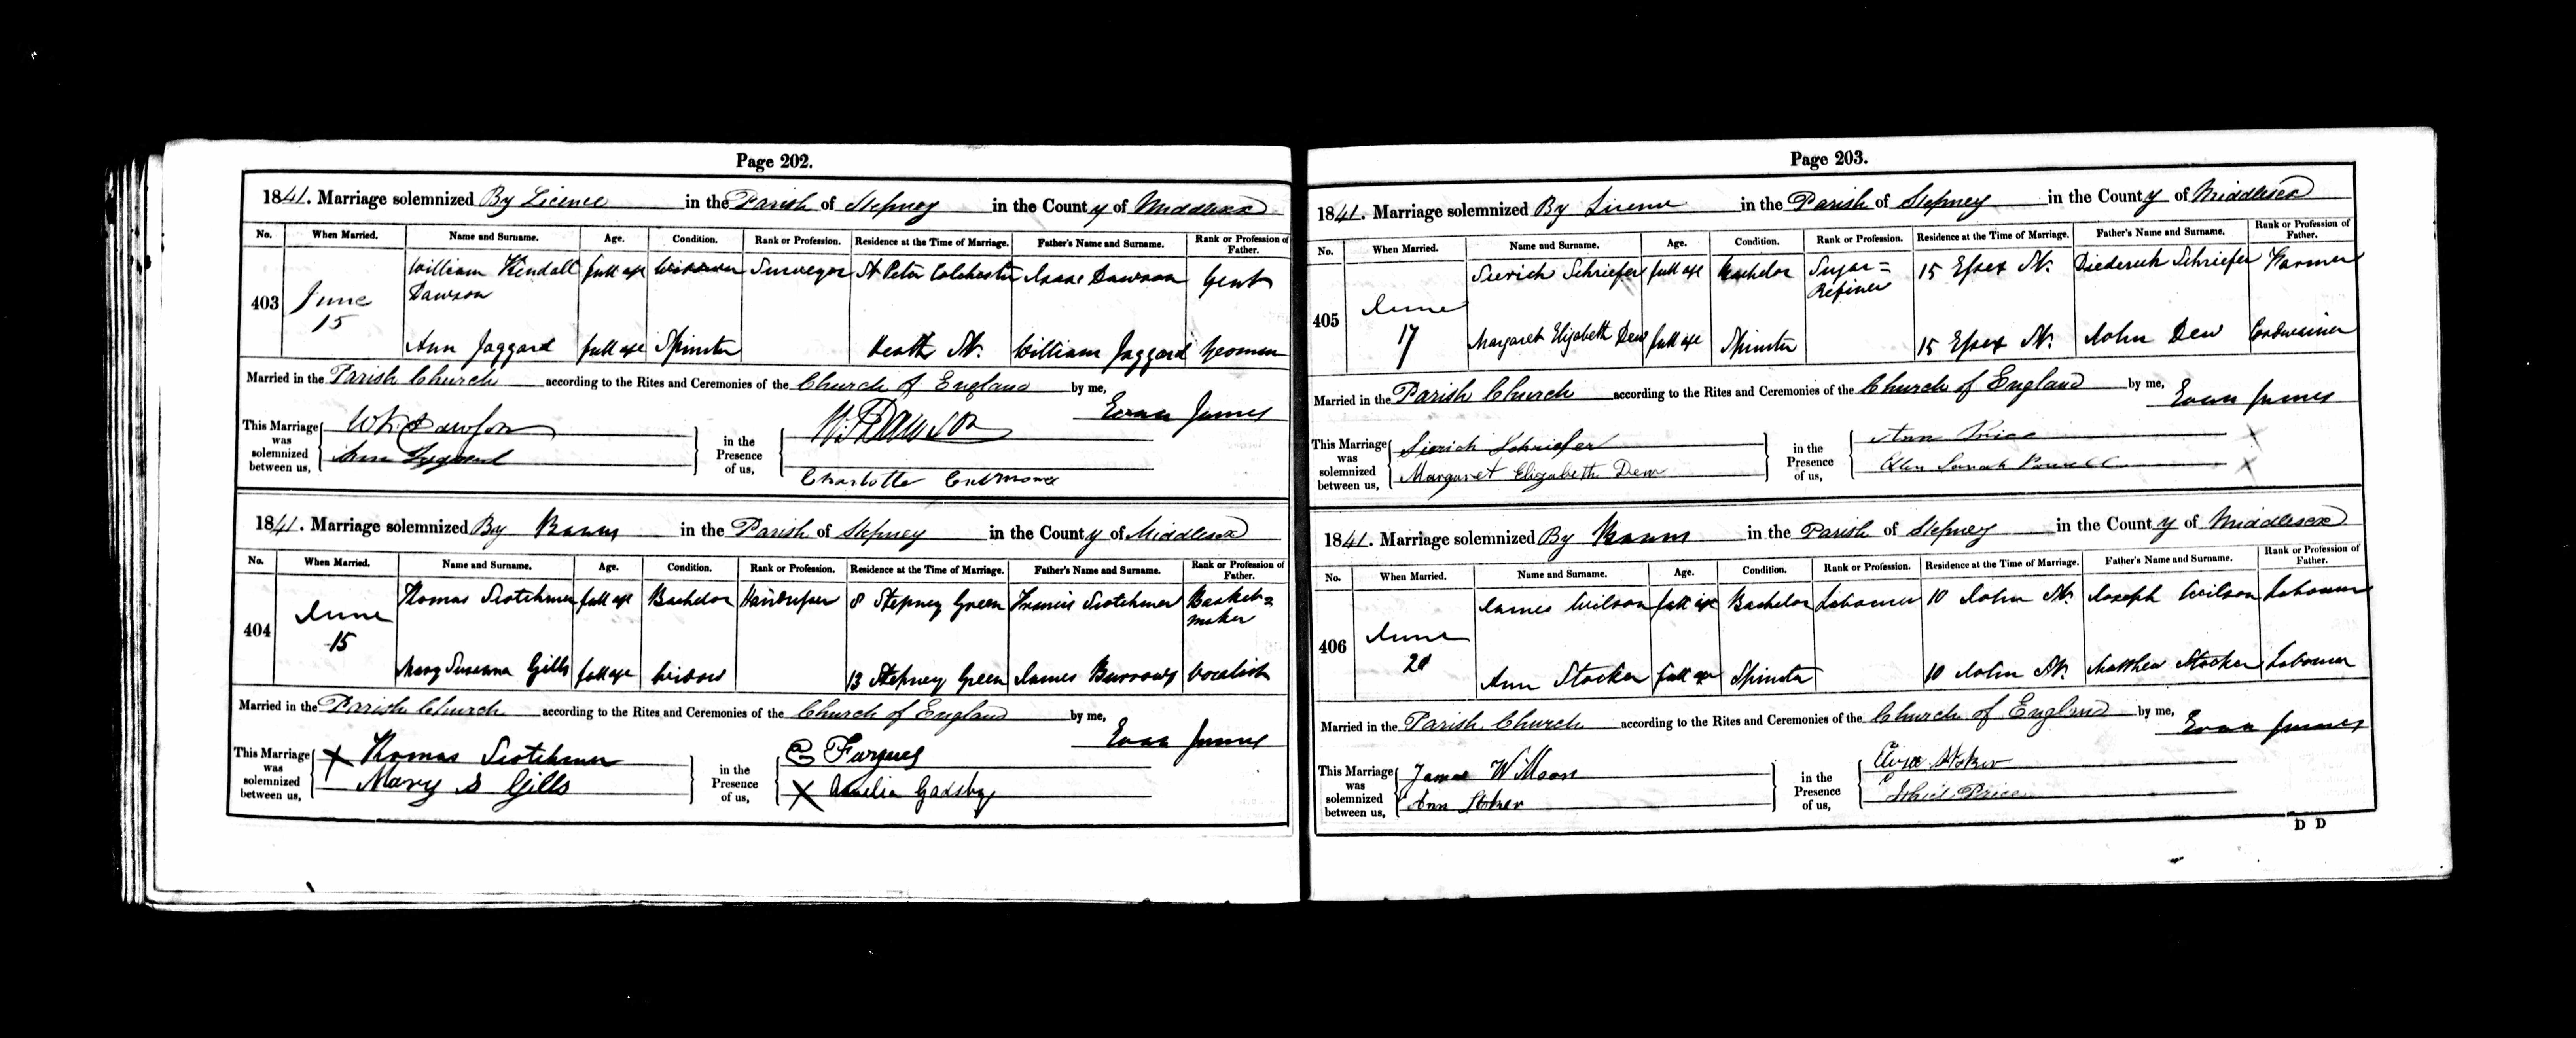 Page 202.
1841. Marriage solemnized By Licence in the Parish of Stepney in the County of Middlesex
No. When Married. Name and Surname. Age. Condition. Rank or Profession. Residence at the Time of Marriage. Father's Name and Surname. Rank or Profession of Father.
403 June 15 William Kendall Dawson full age Widower Surveyor St Peter Colchester Isaac Dawson Gent
Ann Jaggard full age Spinster Heath St. William Jaggard Yeoman
Married in the Parish Church according to the Rites and Ceremonies of the Church of England by me,
Evan James
This Marriage was solemnized between us, WK Dawson
Ann Jaggard
in the Presence of us, Dawson
Charlotte
1841. Marriage solemnized By Banns in the Parish of Stepney in the County of Middlesex
No. When Married. Name and Surname. Age. Condition. Rank or Profession. Residence at the Time of Marriage. Father's Name and Surname. Rank or Profession of Father.
404 June 15 Thomas Scotchmer full age Bachelor Hairdresser 8 Stepney Green Francis Scotchmer Basket = maker
Mary Susanna Gills full age Widow 13 Stepney Green James Burrows Vocalist
Married in the Parish Church according to the Rites and Ceremonies of the Church of England by me,
Evan James
This Marriage was solemnized between us, X Thomas Scotchmer
Mary S Gills
in the Presence of us, Fargues
X Amelia Gadsby
Page 203.
1841. Marriage solemnized By Licence in the Parish of Stepney in the County of Middlesex
No. When Married. Name and Surname. Age. Condition. Rank or Profession. Residence at the Time of Marriage. Father's Name and Surname. Rank or Profession of Father.
405 June 17 Sierich Schriefer full age Bachelor Sugar = Refiner 15 Essex St. Diederich Schriefer Farmer
Margaret Elizabeth Dew full age Spinster 15 Essex St. John Dew Cordwainer
Married in the Parish Church according to the Rites and Ceremonies of the Church of England by me,
Evan James
This Marriage was solemnized between us, Sierich Schriefer
Margaret Elizabeth Dew
in the Presence of us, Ann Price X
Sarah Powell X
1841. Marriage solemnized By Banns in the Parish of Stepney in the County of Middlesex
No. When Married. Name and Surname. Age. Condition. Rank or Profession. Residence at the Time of Marriage. Father's Name and Surname. Rank or Profession of Father.
406 June 20 James Wilson full age Bachelor Labourer 10 John St. Joseph Wilson Labourer
Ann Stocker full age Spinster 10 John St. Matthew Stocker Labourer
Married in the Parish Church according to the Rites and Ceremonies of the Church of England by me,
Evan James
This Marriage was solemnized between us, James Willson
Ann Stoker
in the Presence of us, Eliza Stoker
Price
D D